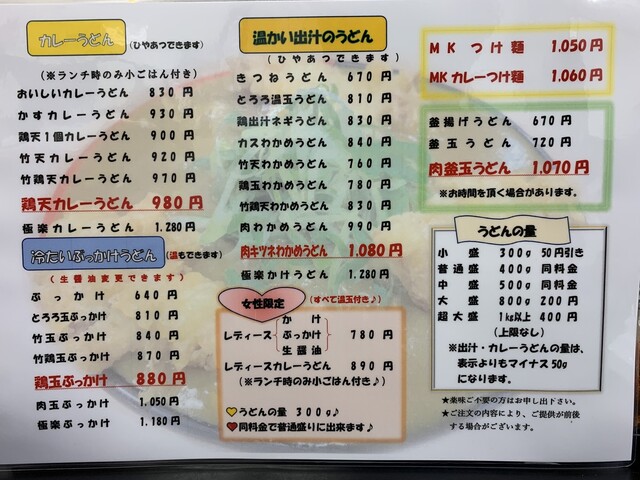 カレーうどん (ひやあつできます)
(※ランチ時のみ小ごはん付き)
おいしいカレーうどん 830円
かすカレーうどん 930円
鶏天1個カレーうどん 900円
竹天カレーうどん 920円
竹鶏天カレーうどん 970円
鶏天カレーうどん 980円
極楽カレーうどん 1.280円
冷たいぶっかけうどん (温もできます)
(生醤油変更できます)
ぶっかけ 640円
とろろ玉ぶっかけ 810円
竹玉ぶっかけ 840円
竹鶏玉ぶっかけ 870円
鶏玉ぶっかけ 880円
肉玉ぶっかけ 1.050円
極楽ぶっかけ 1.180円
温かい出汁のうどん
(ひやあつできます)
きつねうどん 670円
とろろ温玉うどん 810円
鶏出汁ネギうどん 830円
カスわかめうどん 840円
竹天わかめうどん 760円
鶏玉わかめうどん 780円
竹鶏天わかめうどん 830円
肉わかめうどん 990円
肉キツネわかめうどん 1.080円
極楽かけうどん 1.280円
女性限定 (すべて温玉付き♪)
かけ
レディース ぶっかけ 780円
生醤油
レディースカレーうどん 890円
(※ランチ時のみ小ごはん付き♪)
💛うどんの量 300g♪
❤同料金で普通盛りに出来ます♪
MK つけ麺 1.050円
MKカレーつけ麺 1.060円
釜揚げうどん 670円
釜玉うどん 720円
肉釜玉うどん 1.070円
※お時間を頂く場合があります。
うどんの量
小盛 300g 50円引き
普通盛 400g 同料金
中盛 500g 同料金
大盛 800g 200円
超大盛 1kg以上 400円
(上限なし)
※出汁・カレーうどんの量は、
表示よりもマイナス50g
になります。
★薬味ご不要の方はお申し出下さい。
★ご注文の内容により、ご提供が前後
する場合がございます。